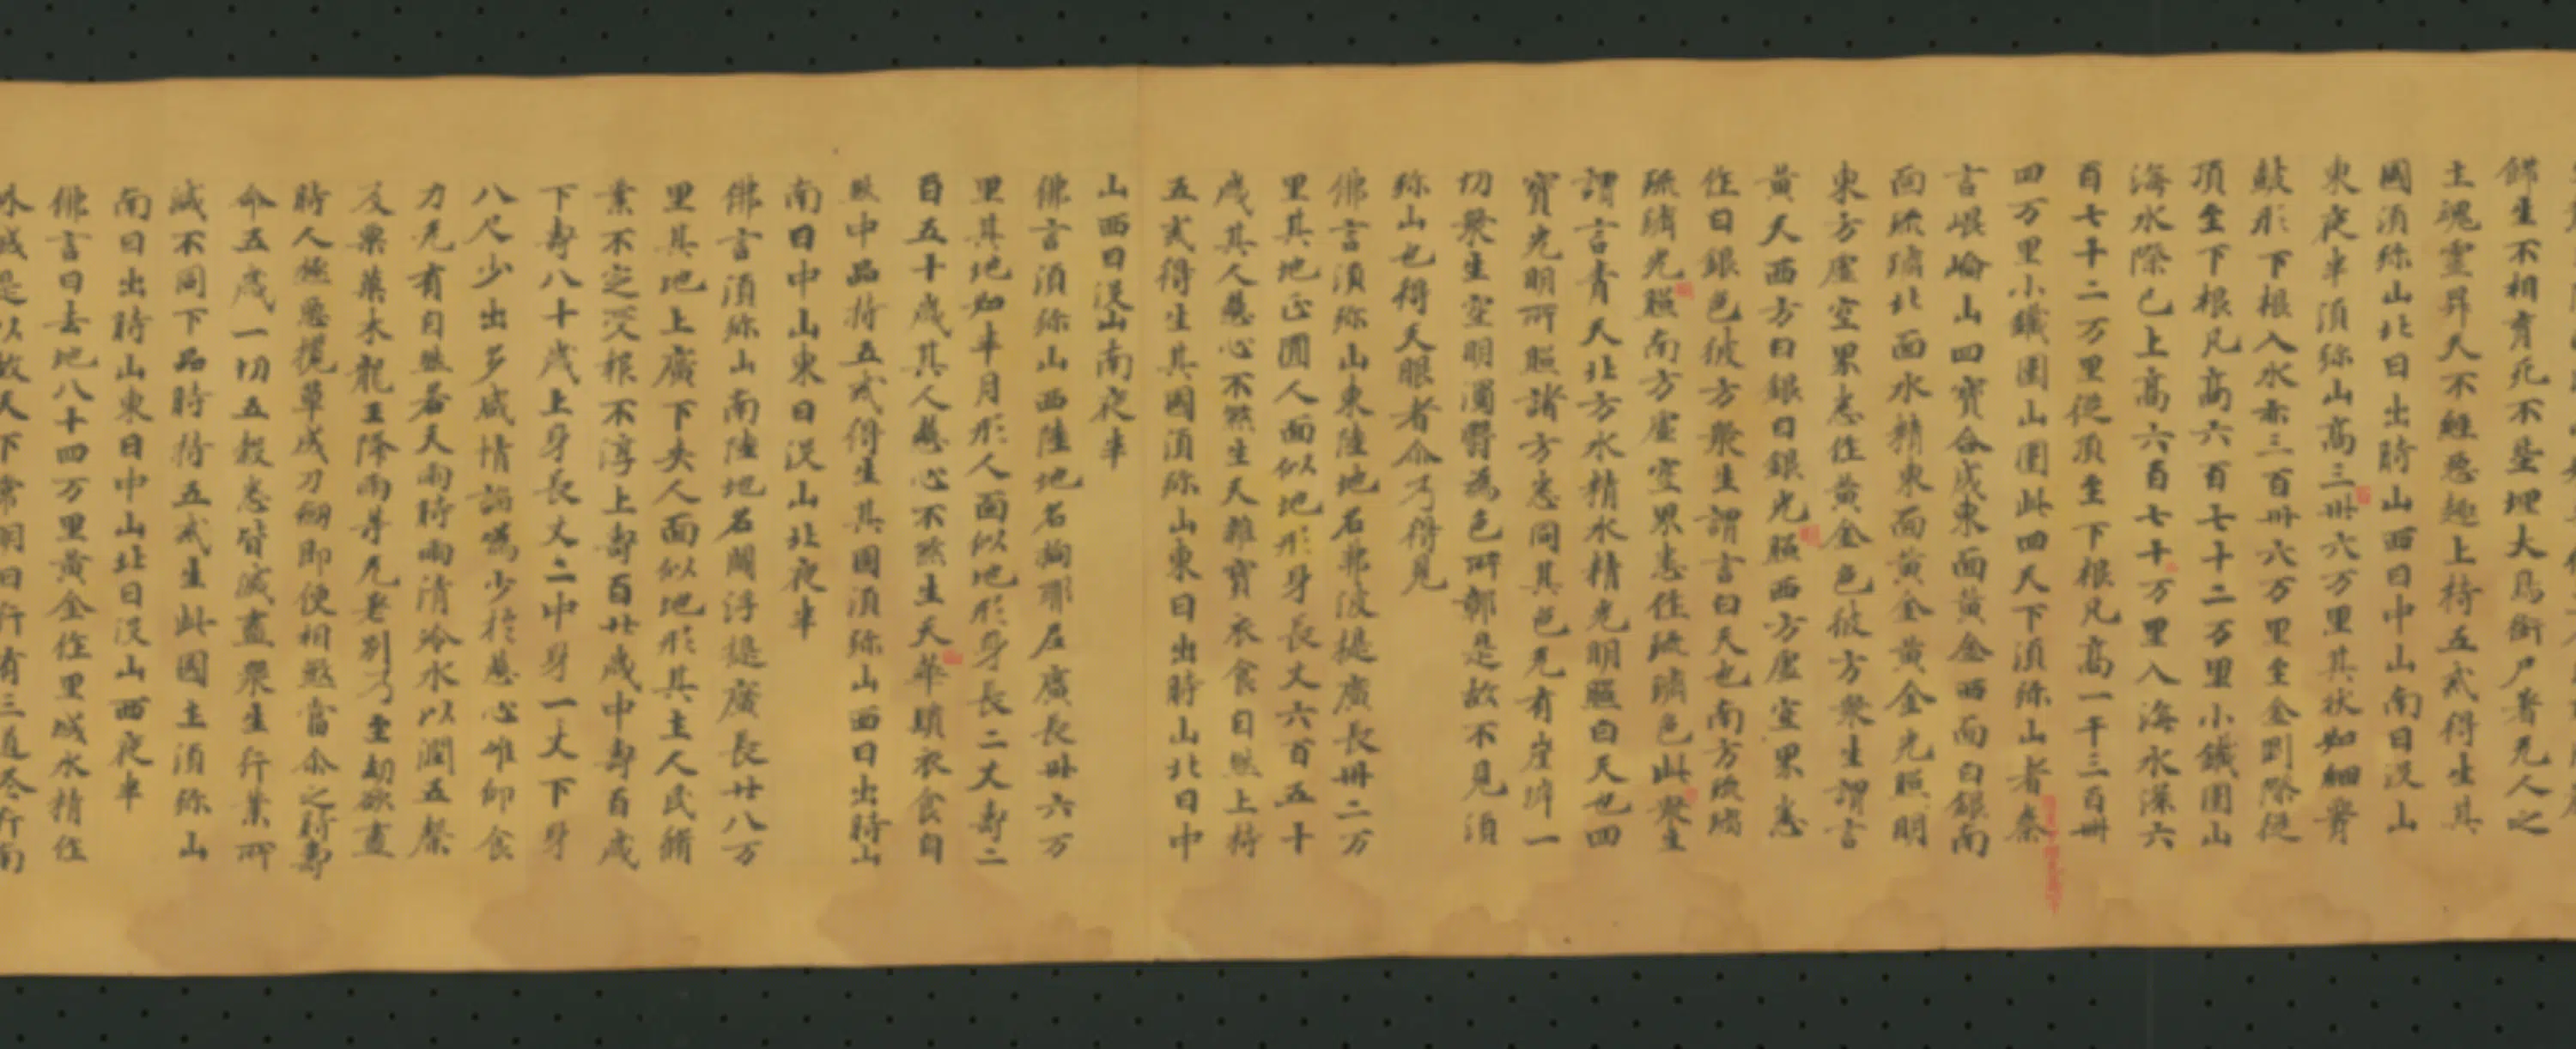 餘生不相有死不埊埋大鳥銜尸著凡人之
土魂靈昇天不經惡趣上持五戒得生其
國須弥山北日出時山西日中山南日没山
東夜半須弥山高三卅六万里其状如細脊
皷形下根入水亦三百卅六万里至金剛際從
頂至下根凡高六百七十二万里小鐵圍山
海水際已上高六百七十万里入海水深六
百七十二万里從頂至下根凡高一千三百卌
四万里小鐵圍山圍此四天下須弥山者秦
言崐崘山四寶合成東面黄金西面白銀南
面琉璃北面水精東面黄金黄金光照明
東方虚空界悉作黄金色彼方衆生謂言
黄天西方白銀白銀光照西方虚空界悉
作白銀色彼方衆生謂言白天也南方琉璃
琉璃光照南方虚空界悉作琉璃色此衆生
謂言青天北方水精水精光明照曰天也四
寶光明所照諸方悉同其色无有崖岸一
切衆生空明濁翳為色所鄣是故不見須
弥山也得天眼者尒乃得見
佛言須弥山東陸地名弗波提廣長卌二万
里其地正圓人面似地形身長丈六百五十
歲其人慈心不煞生天雜寶衣食自然上持
五戒得生其國須弥山東日出時山北日中
山西日没山南夜半
佛言須弥山西陸地名拘耶尼廣長卌六万
里其地如半月形人面似地形身長二丈壽二
百五十歲其人慈心不煞生天華瓔衣食自
然中品持五戒得生其國須弥山西日出時山
南日中山東日没山北夜半
佛言須弥山南陸地名閻浮提廣長廿八万
里其地上廣下尖人面似地形其主人民脩
業不定受根不淳上壽百廿歲中壽百歲
下壽八十歲上身長丈二中身一丈下身
八尺少出多咸情謟嚆少於慈心唯仰食
力无有自然若天雨時雨清冷水以潤五槃
及菓藥木龍王降雨等无差别乃至劫欲盡
時人極惡攬草成刀劒即便相煞當尒之時壽
命五歲一切五穀悉皆滅盡衆生行業所
減不同下品時持五戒生此國土須弥山
南日出時山東日中山北日没山西夜半
佛言日去地八十四万里黄金作里城水精作
外城是以故天下常明日行有三道冬行南